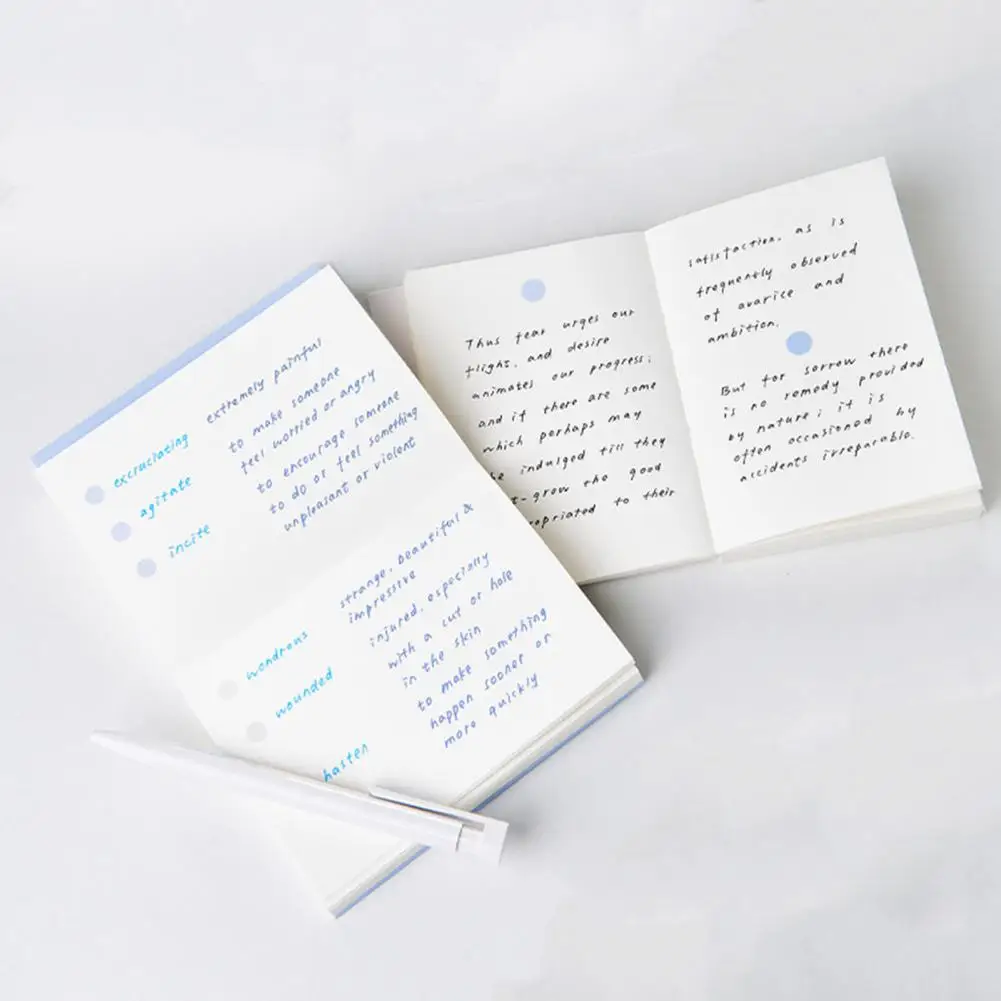 excruciating extremely painful
agitate to make someone
feel worried or angry
incite to encourage someone
to do or feel something
unpleasant or violent
wondrous strange, beautiful &
impressive
wounded injured, especially
with a cut or hole
in the skin
hasten to make something
happen sooner or
more quickly
Thus fear urges our
flight, and desire
animates our progress;
and if there are some
which perhaps may
be indulged till they
t-grow the good
ropriated to their
satisfaction, as is
frequently observed
of avarice and
ambition.
But for sorrow there
is no remedy provided
by nature; it is
often occasioned by
accidents irreparable.